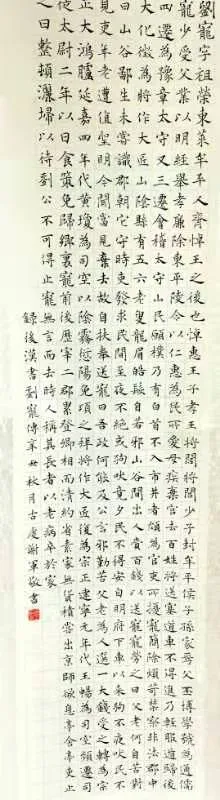 劉寵字祖榮東萊牟平人齊悼王之後也悼惠王子孝王將閭將閭少子封牟平侯子孫家焉父丕博學號為通儒
寵少受父業以明經舉孝廉除東平陵令以仁惠為民所愛母疾棄官去百姓將送塞道車不得進乃輕服遁歸後
四遷為豫章太守又三遷會稽太守山民願樸乃有白首不入市井者頗為官吏所擾寵簡除煩苛禁察非法郡中
大化徵為將作大匠山陰縣有五六老叟龐眉皓髮自若邪山谷間出人賫百錢以送寵寵勞之曰父老何自苦對
曰山谷鄙生未嘗識郡朝它守時吏發求民間至夜不絕或狗吠竟夕民不得安自明府下車以來狗不夜吠民不
見吏年老遭值聖明今聞當見棄去故自扶奉送寵曰吾政何能及公言邪勤苦父老為人選一大錢受之轉為宗
正大鴻臚延嘉四年代黃瓊為司空以陰霧愆陽免頃之拜將作大匠復為宗正建寧元年代王暢為司空頻遷司
徒太尉二年以日食策免歸鄉里寵前後歷宰二郡累登卿相而清約省素家無貨積嘗出京師欲息亭舍亭吏止
之曰整頓灑埽以待劉公不可得止寵無言而去時人稱其長者以老病卒於家
錄後漢書劉寵傳辛丑秋月古度謝軍敬書